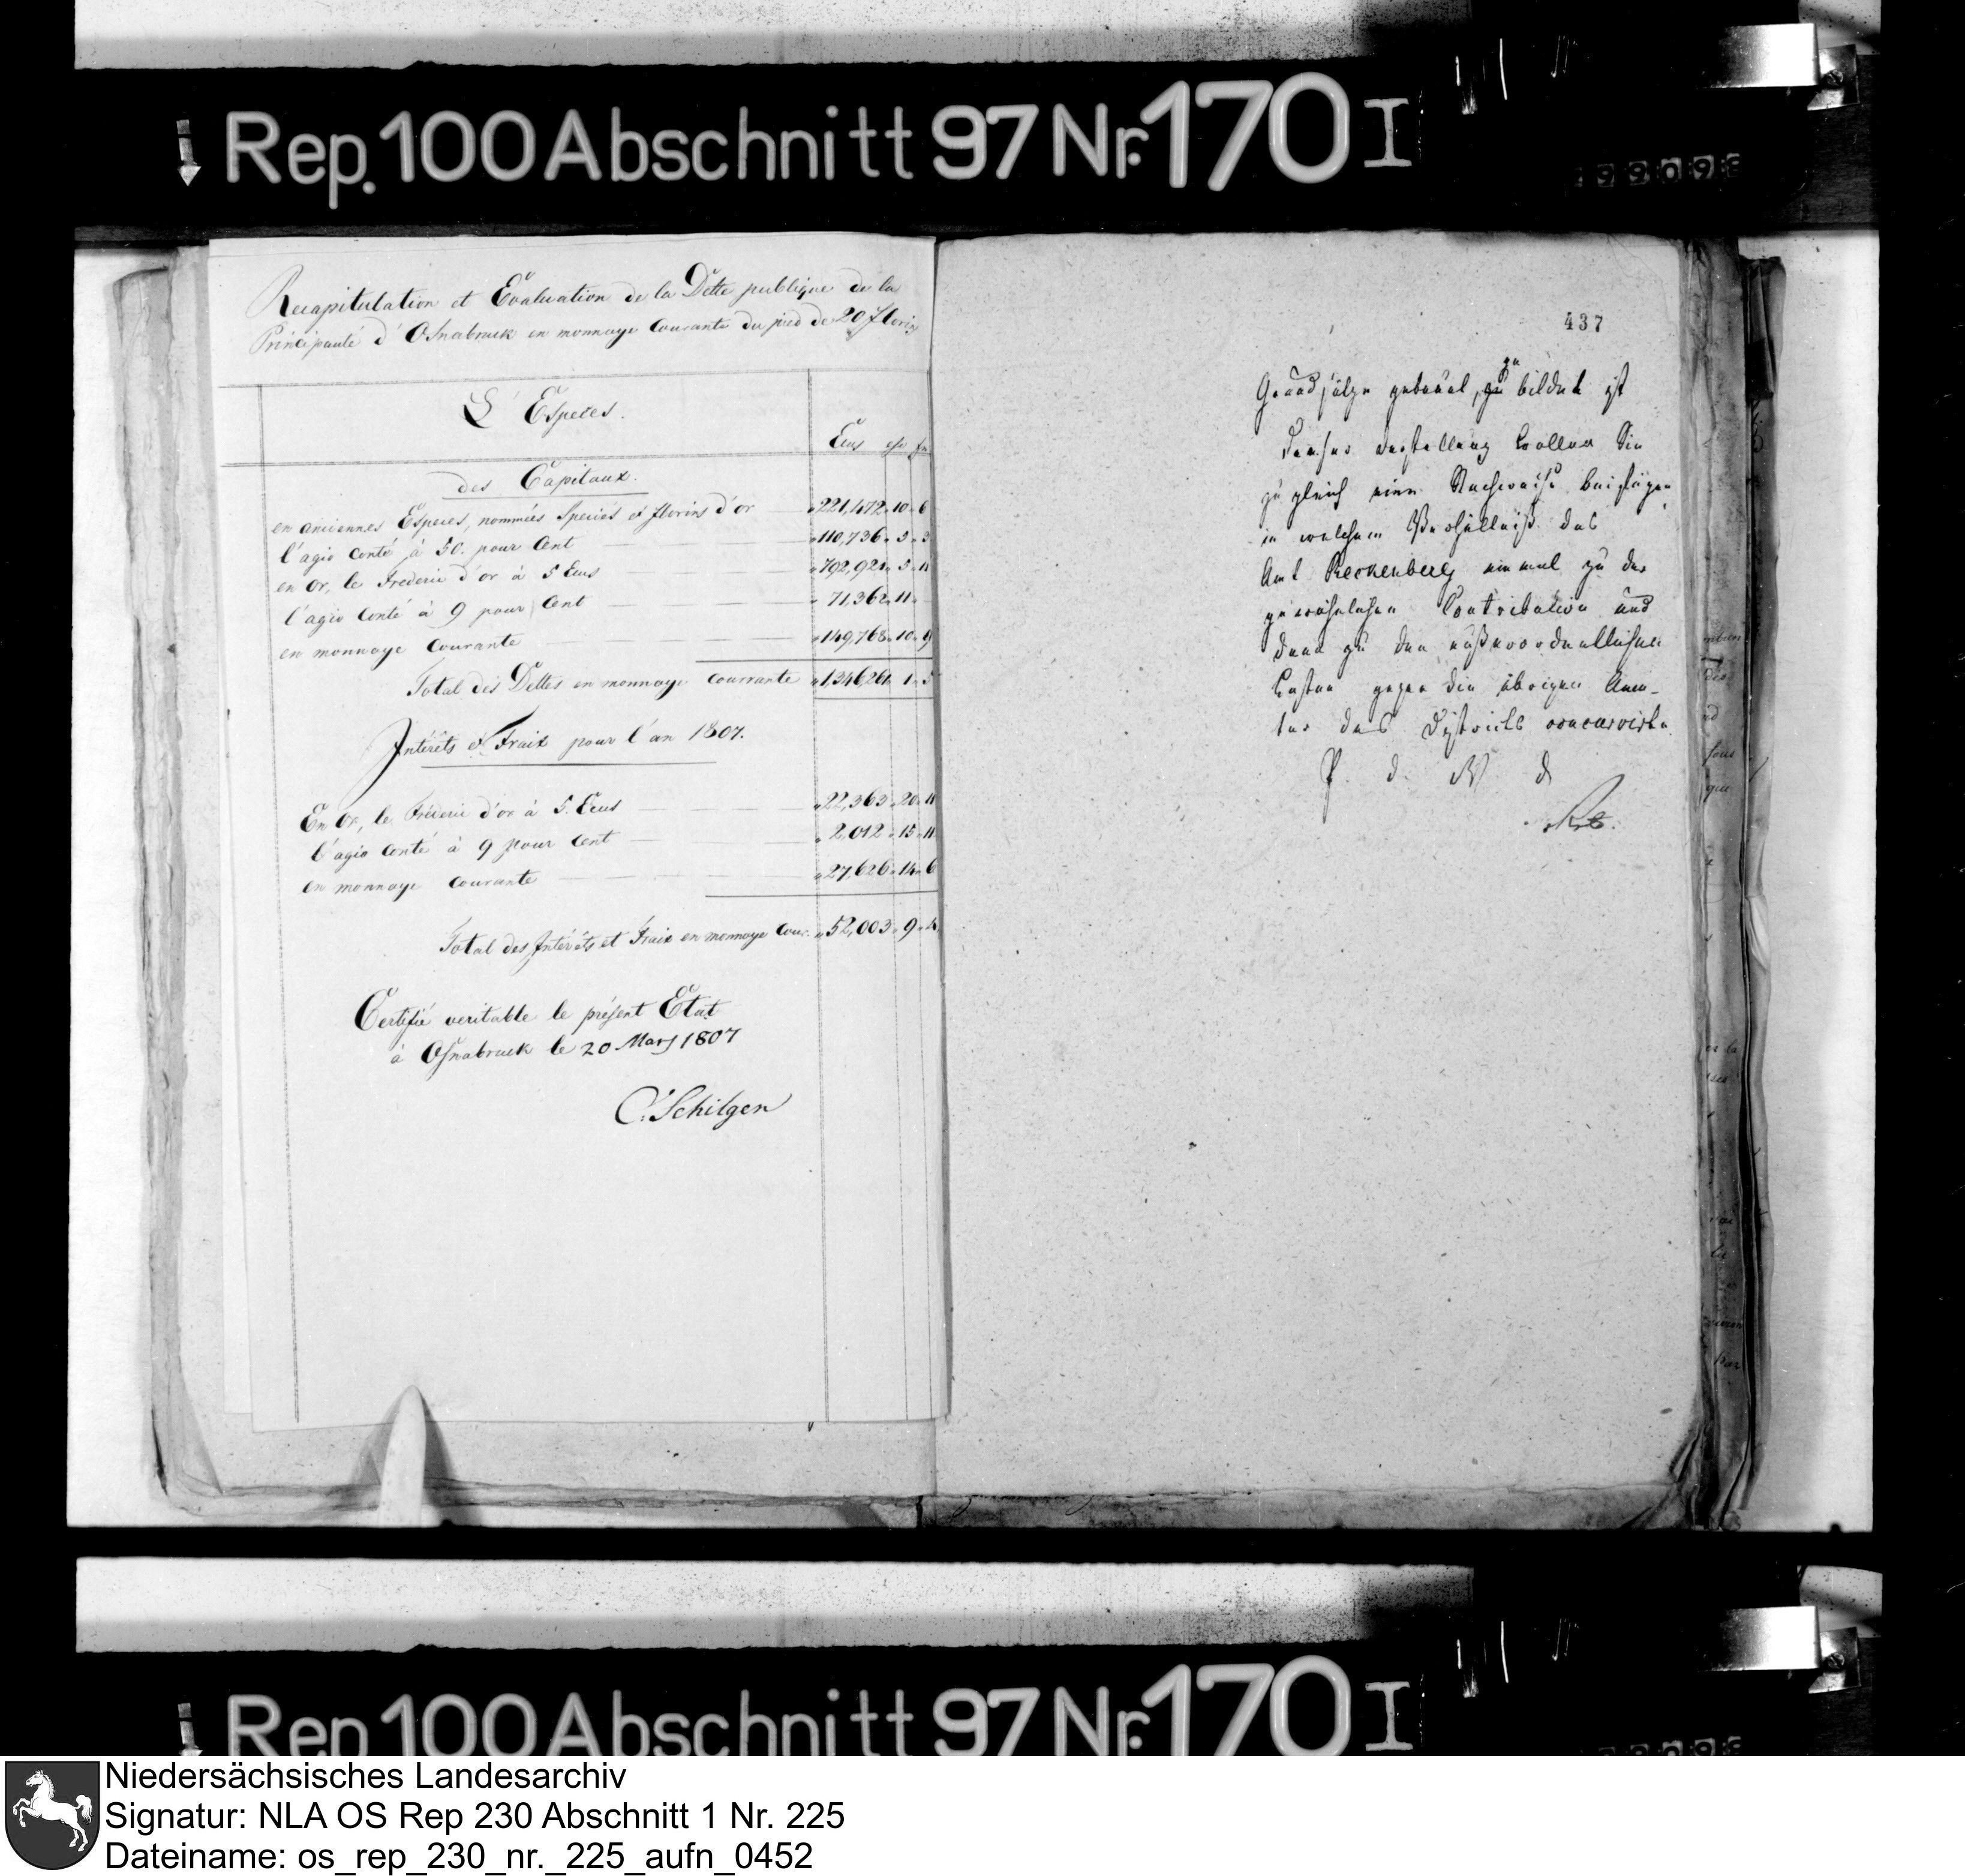 Rep. 100 Abschnitt 97 Nr. 170 I
Recapitulation et Evaluation de la Dette publique de la
Principauté d'Osnabruck en monnaye Courante du pied de 20 florins
L'Especes.
Ecus
des Capitaux.
en anciennes Especes, nommées Species et florins d'or 221,472 10 6
l'agio conté à 50. pour Cent 110,736 5 3
en Or, le Frederic d'or à 5 Ecus 792,921 5 11
l'agio conté à 9 pour Cent 71,362 11
en monnaye Courante 149,768 10 9
Total des Dettes en monnaye courrante 1,346,261 1 5
Intérêts et Fraix pour l'an 1807.
En Or, le Fréderic d'or à 5. Ecus 22,363 20 11
l'agio conté à 9 pour Cent 2,012 15 11
en monnaye courante 27,626 14 6
Total des Intérêts et Fraix en monnaye Cour. 52,003 9 4
Certifié veritable le présent Etat
à Osnabruck le 20 Mars 1807
C. Schilgen
437
zu bildet ist
Dieser Darstellung wollen Sie
zu gleich eine Nachweise beifügen
in welchem Verhältniß das
Amt Reckenberg einmal zu der
gewöhnlichen Contribution und
dann zu den außerordentlichen
Lasten gegen die übrigen Aem-
ter des Districts concurrirte.
Rep 100 Abschnitt 97 Nr. 170 I
Niedersächsisches Landesarchiv
Signatur: NLA OS Rep 230 Abschnitt 1 Nr. 225
Dateiname: os_rep_230_nr._225_aufn_0452